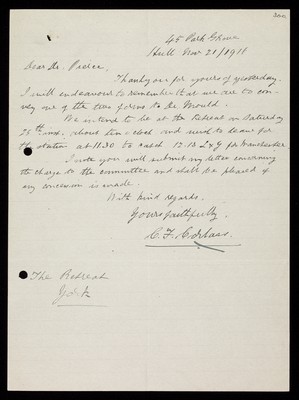 45 Park Grove
Hull Nov 21/1911
Dear Dr. Pierce,
Thank you for yours of yesterday.
I will endeavour to remember that we are to con-
vey one of the two forms to Dr Mould.
We intend to be at the Retreat on Saturday
25th inst. about ten o'clock and need to leave for
the station at 11.30 to catch 12.13 L & Y for Manchester.
I note you will submit my letter concerning
the charge to the committee and shall be pleased if
any concession is made.
With kind regards.
Yours faithfully,
C. F. Corlass.
The Retreat
York